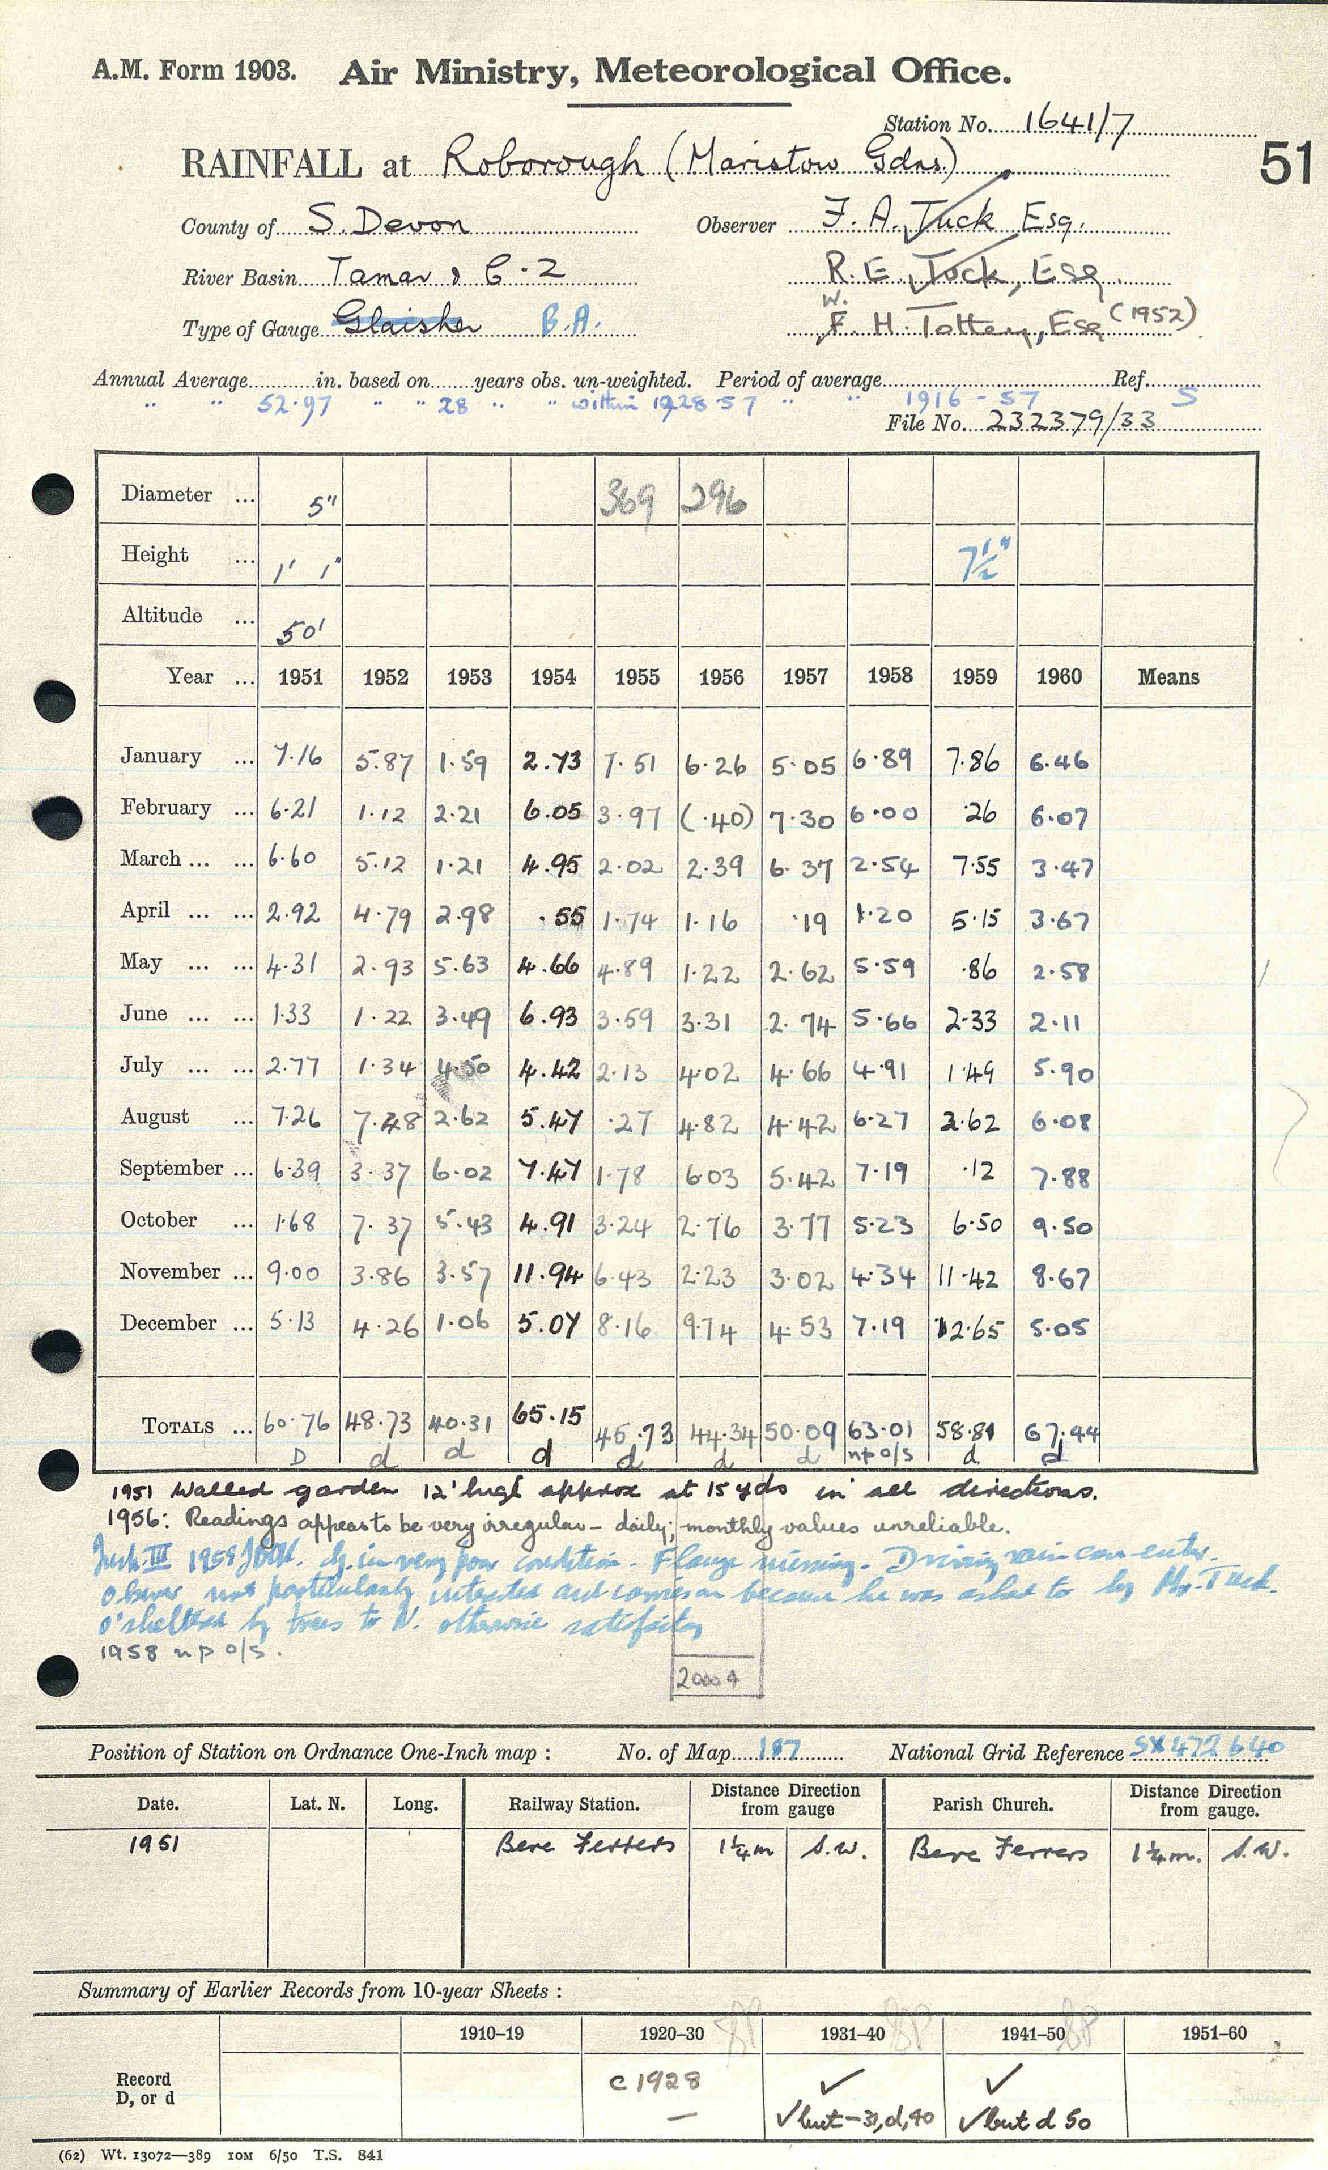 A.M. Form 1903. Air Ministry, Meteorological Office.
Station No. 1641/7
51
RAINFALL at Roborough (Maristow Gdns.)
County of S. Devon Observer F. A. Tuck Esq.
River Basin Tamar & C-2 R. E. Tock, Esq
Type of Gauge Glaisher B.A. W. F. H. Tottem, Esq (1952)
Annual Average in. based on years obs. un-weighted. Period of average Ref.
" " 52.97 " " 28 " " within 1928-57 " " 1916-57 S
File No. 232379/33
Diameter ... 5" 369 296
Height ... 1' 1" 7½"
Altitude ... 50'
Year ... 1951 1952 1953 1954 1955 1956 1957 1958 1959 1960 Means
January ... 7.16 5.87 1.59 2.73 7.51 6.26 5.05 6.89 7.86 6.46
February ... 6.21 1.12 2.21 6.05 3.97 (.40) 7.30 6.00 .26 6.07
March ... ... 6.60 5.12 1.21 4.95 2.02 2.39 6.37 2.54 7.55 3.47
April ... ... 2.92 4.79 2.98 .55 1.74 1.16 .19 1.20 5.15 3.67
May ... ... 4.31 2.93 5.63 4.66 4.89 1.22 2.62 5.59 .86 2.58
June ... ... 1.33 1.22 3.49 6.93 3.59 3.31 2.74 5.66 2.33 2.11
July ... ... 2.77 1.34 4.50 4.42 2.13 4.02 4.66 4.91 1.49 5.90
August ... 7.26 7.48 2.62 5.47 .27 4.82 4.42 6.27 2.62 6.08
September ... 6.39 3.37 6.02 7.47 1.78 6.03 5.42 7.19 .12 7.88
October ... 1.68 7.37 5.43 4.91 3.24 2.76 3.77 5.23 6.50 9.50
November ... 9.00 3.86 3.57 11.94 6.43 2.23 3.02 4.34 11.42 8.67
December ... 5.13 4.26 1.06 5.07 8.16 9.74 4.53 7.19 12.65 5.05
TOTALS ... 60.76 48.73 40.31 65.15 45.73 44.34 50.09 63.01 58.81 67.44
D d d d d d d np o/s d d
1951 Walled garden 12' high approx at 15 yds in all directions.
1956: Readings appear to be very irregular - daily; monthly values unreliable.
III 1958 in very poor condition. Flange missing. Driving rain can enter.
Observer not particularly interested and carries on because he was asked to by Mr. Tuck.
O'sheltered by trees to N. otherwise satisfactory
1958 np o/s.
2000 9
Position of Station on Ordnance One-Inch map : No. of Map 187 National Grid Reference SX 472 640
Date. Lat. N. Long. Railway Station. Distance Direction from gauge Parish Church. Distance Direction from gauge.
1951 Bere Ferrers 1¼m S.W. Bere Ferrers 1¼m. S.W.
Summary of Earlier Records from 10-year Sheets :
1910–19 1920–30 1931–40 1941–50 1951–60
Record D, or d c 1928 ✓ ✓
— ✓ but – 39, d, 40 ✓ but d 50
(62) Wt. 13072—389 10M 6/50 T.S. 841